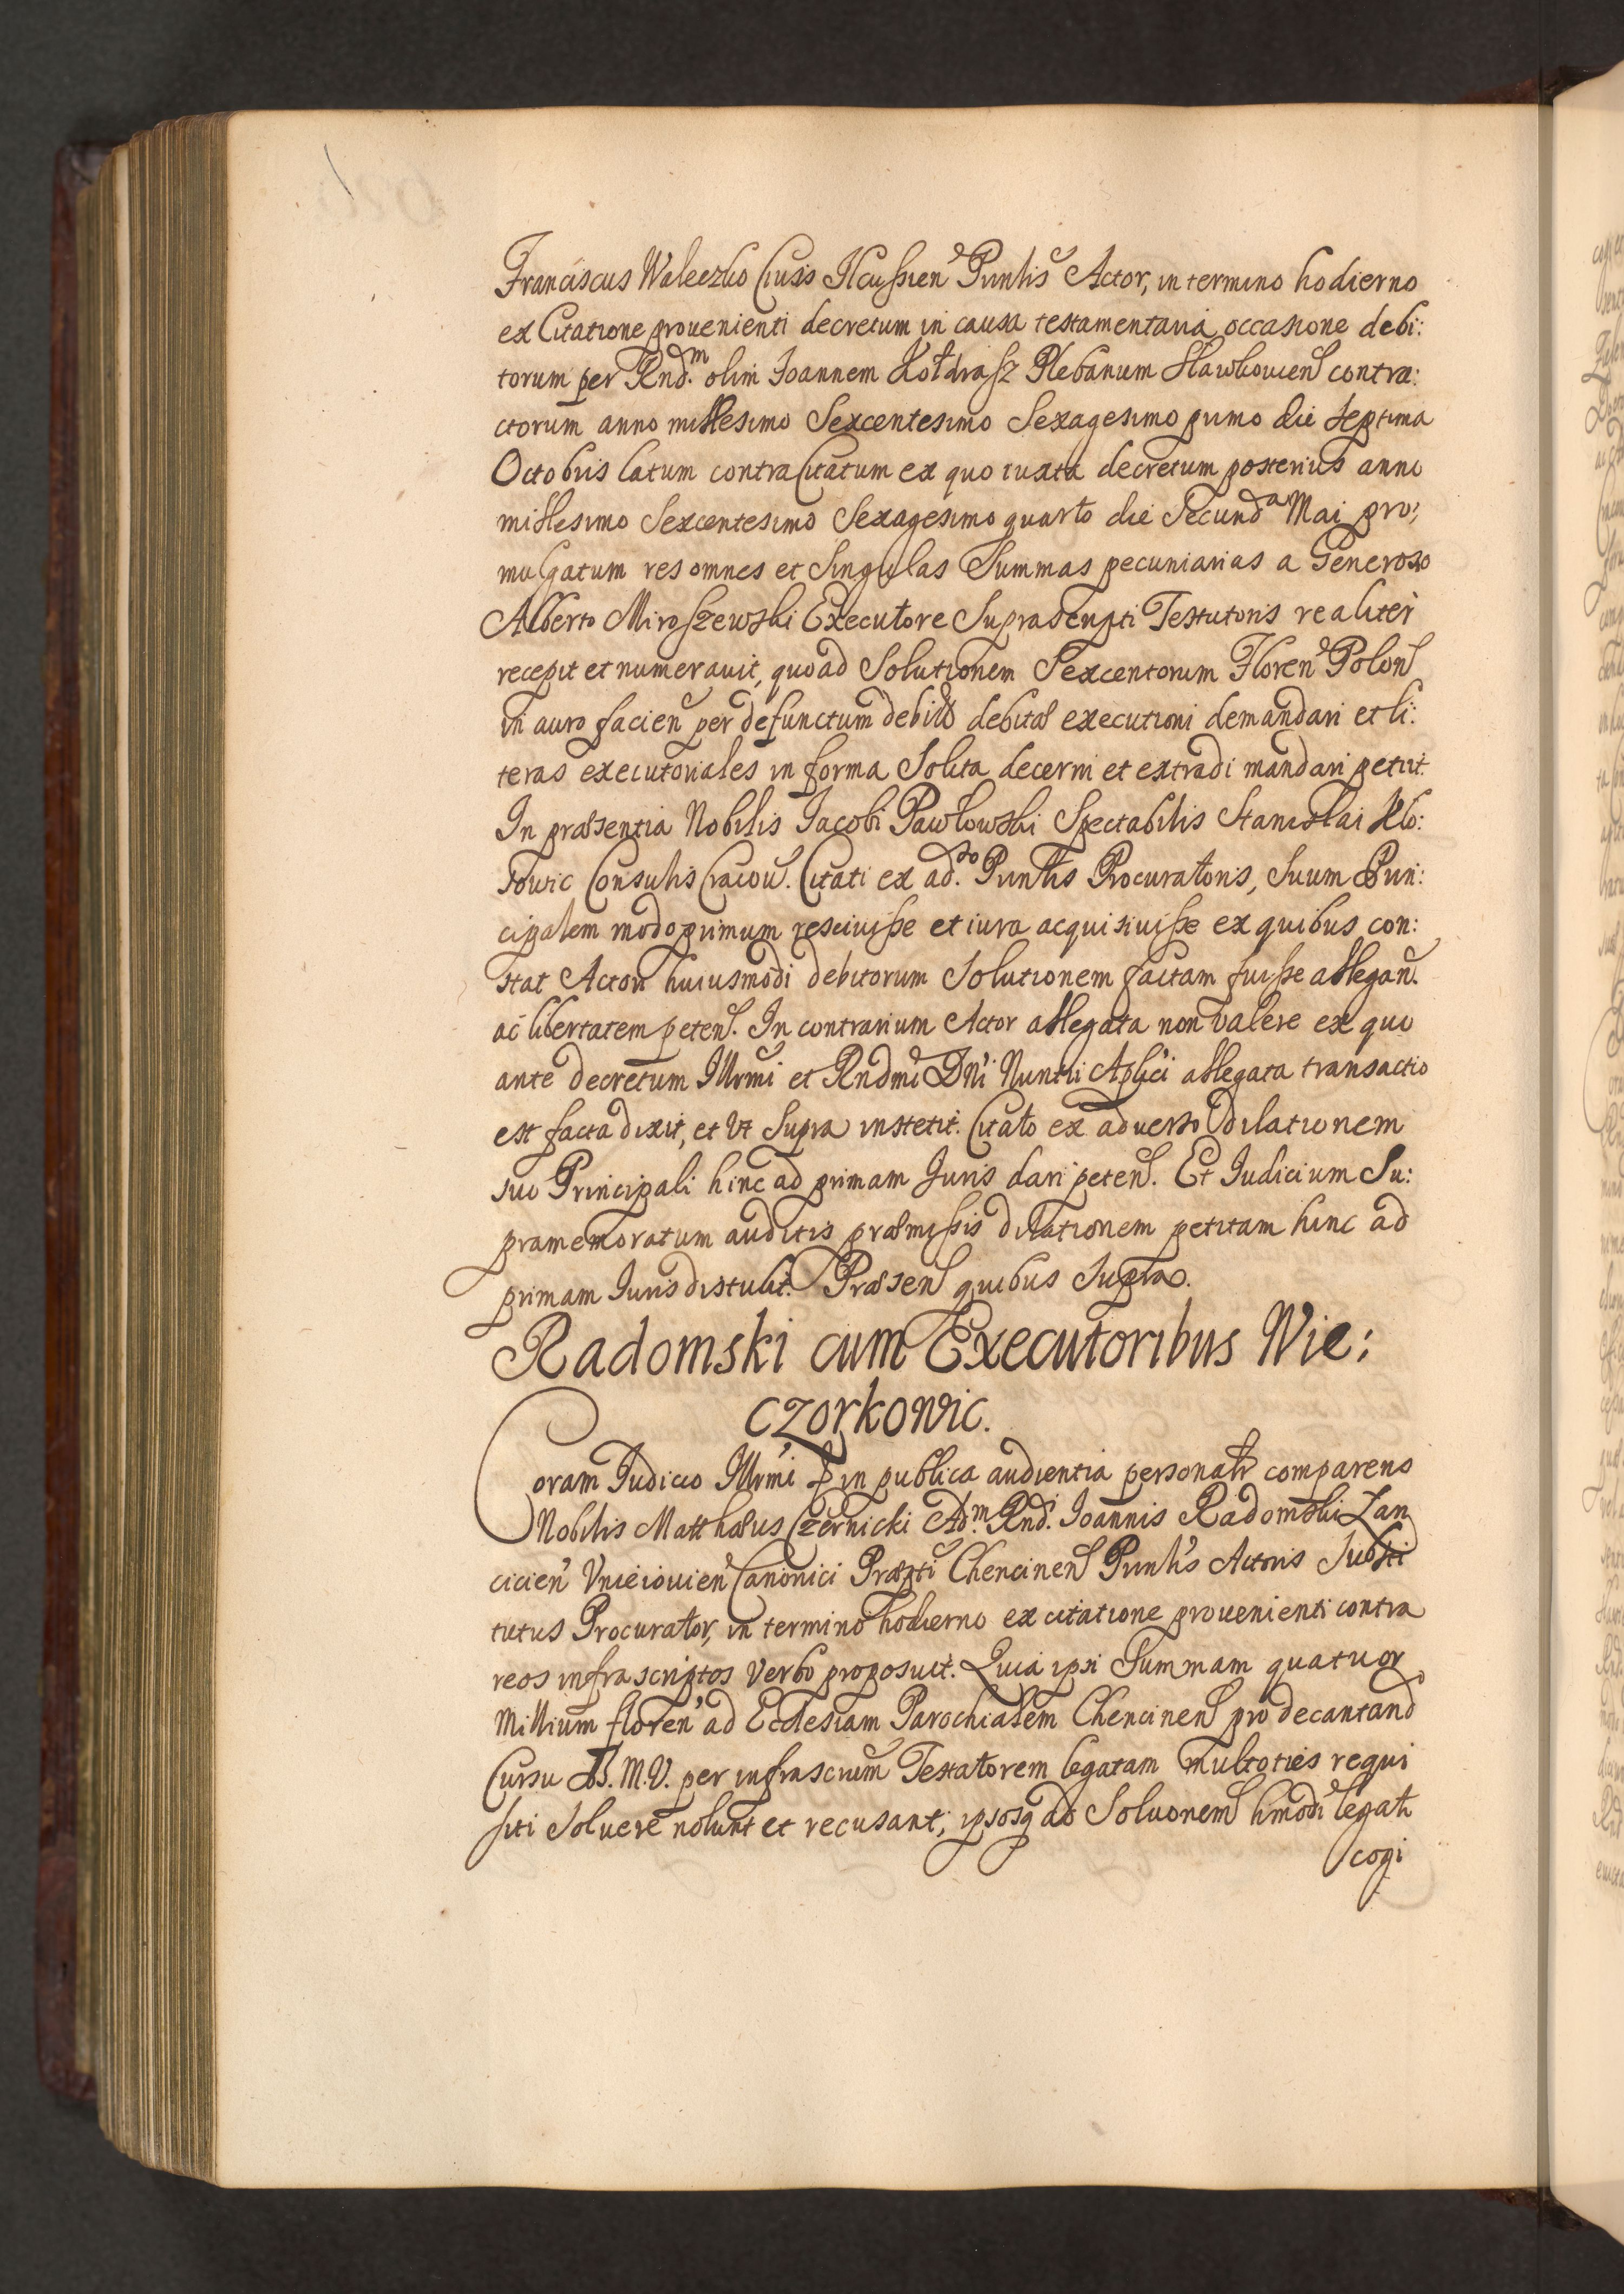 Franciscus Waleczko Ciuis Ilcussien Pnntis Actor, in termino hodierno
ex Citatione prouenienti decretum in causa testamentaria occasione debi:
torum per Rnd.m olim Joannem Kołdrasz Plebanum Slawkouien contra:
ctorum anno millesimo Sexcentesimo Sexagesimo primo die Septima
Octobris latum contra Citatum ex quo iuxta decretum posterius anno
millesimo Sexcentesimo Sexagesimo quarto die Secunda Mai pro:
mulgatum res omnes et Singulas Summas pecuniarias a Generoso
Alberto Miroszewski Executore Suprascripti Testatoris realiter
recepit et numerauit, quoad Solutionem Sexcentorum Floren Polon
in auro facien per defunctum debit debitae executioni demandari et li:
teras executoriales in forma Solita decerni et extradi mandari petiit.
In praesentia Nobilis Jacobi Pawlowski Spectabilis Stanislai
Consulis Cracou. Citati ex ad.so Pnntis Procuratoris, Suum Prin:
cipalem modo primum resciuisse et iura acquisiuisse ex quibus con:
stat Actori huiusmodi debitorum Solutionem factam fuisse allegan.
ac libertatem peten. In contrarium Actor allegata non valere ex quo
ante decretum Illrmi et Rndmi Dni Nuntii Aplici allegata transactio
est facta dixit, et vt Supra institit. Citato ex aduerso dilationem
suo Principali hinc ad primam Juris dari peten. Et Judicium Su:
pramemoratum auditis praemissis dilationem petitam hinc ad
primam Juris distulit. Praesen quibus Supra.
Radomski cum Executoribus Wie:
czorkowic.
Coram Judicio Illrmi p in publica audientia personalr comparens
Nobilis Matthaeus Czernicki Ad.m Rnd.i Joannis Radomski Lan
cicien Vnieiouien Canonici Praepti Chencinen Pnntis Actoris Substi
tutus Procurator, in termino hodierno ex citatione prouenienti contra
reos infrascriptos verbo proposuit. Quia ipsi Summam quatuor
Millium floren ad Ecclesiam Parochialem Chencinen pro decantand
Cursu B. M. V. per infrascrum Testatorem legatam multoties requi
siti Soluere nolunt et recusant; ipsosq ad Soluonem hmodi legati
cogi